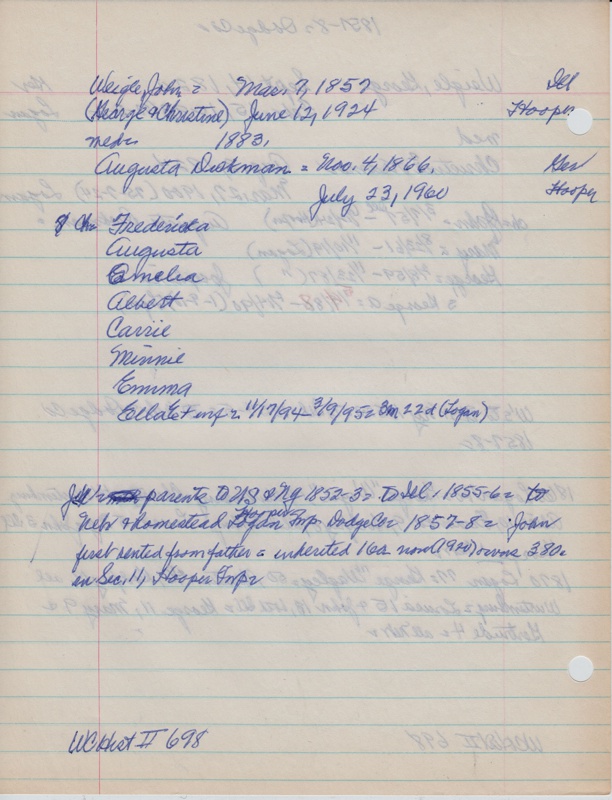 Weigle, John = Mar. 7, 1857 Ill
(George & Christine) June 12, 1924 Hooper
md. 1883.
Augusta Diekman = Nov. 4, 1866. Ger
July 23, 1960 Hooper
8 Ch= Fredericka
Augusta
Amelia
Albert
Carrie
Minnie
Emma
Ella Et inf = 11/17/94-3/9/95= 3m 22d (Logan)
parents to US & NY 1852-3= to Ill. 1855-6= to
Hooper
Neb & homestead Logan Tmp. Dodge Co= 1857-8= John
first rented from father = inherited 16a now (1920) owns 380a
in Sec. 11, Hooper Tmp=
WC Hist II 698